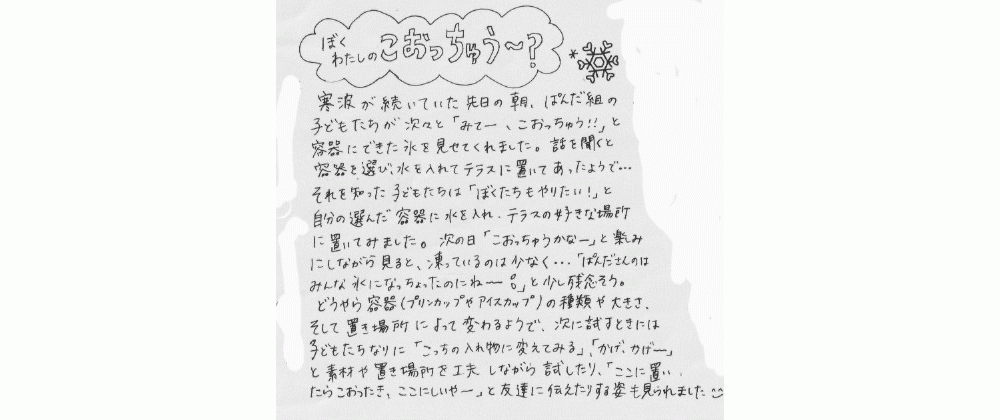 ぼく
わたしの こおっちゅう〜?
寒波が続いていた先日の朝、ぱんだ組の
子どもたちが次々と「みてー、こおっちゅう!!」と
容器にできた氷を見せてくれました。話を聞くと
容器を選び、水を入れてテラスに置いてあったようで…
それを知った子どもたちは「ぼくたちもやりたい!」と
自分の選んだ容器に水を入れ、テラスの好きな場所
に置いてみました。次の日「こおっちゅうかなー」と楽しみ
にしながら見ると、凍っているのは少なく…「ぱんださんのは
みんな氷になっちょったのにねー。」と少し残念そう。
どうやら容器(プリンカップやアイスカップ)の種類や大きさ、
そして置き場所によって変わるようで、次に試すときには
子どもたちなりに「こっちの入れ物に変えてみる」、「かげ、かげー」
と素材や置き場所を工夫しながら試したり、「ここに置い
たらこおったき、ここにしいやー」と友達に伝えたりする姿も見られました